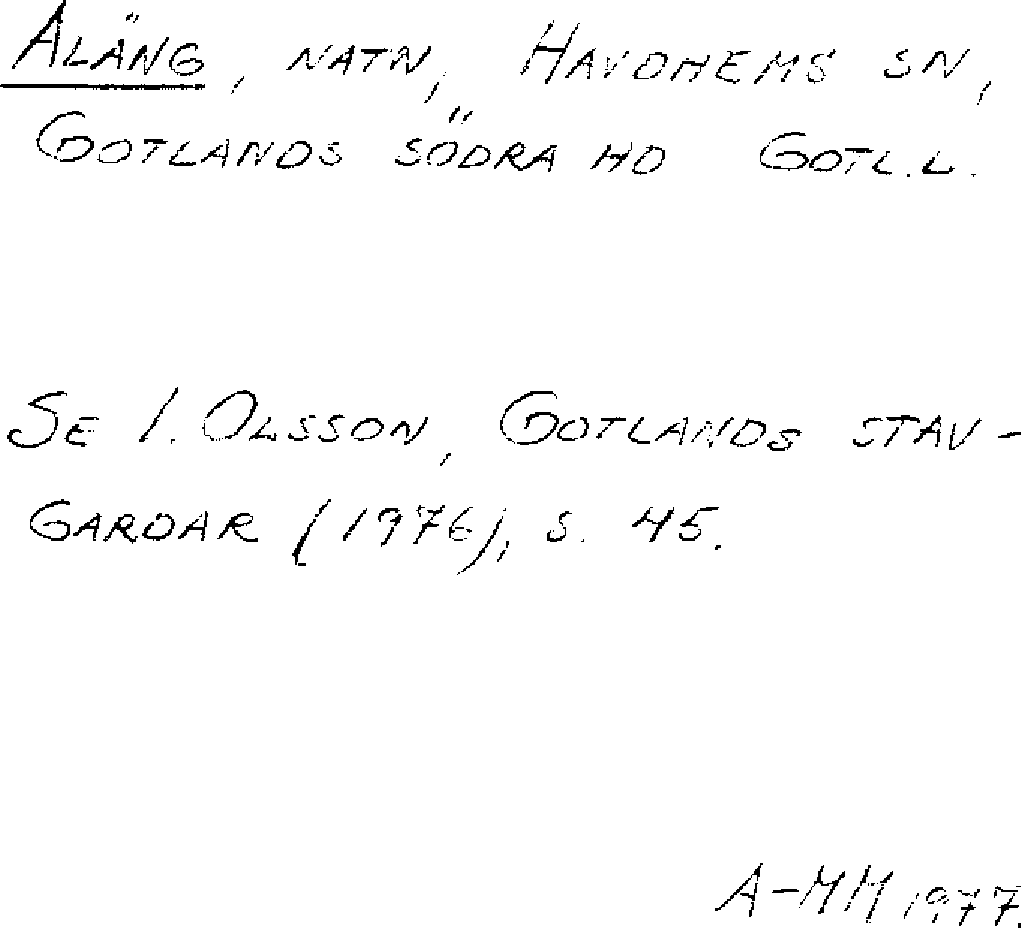 Aläng, natn, Havdhems sn,
Gotlands södra hd Gotl.l.
Se I. Olsson, Gotlands stav-
gardar (1976), s. 45.
A-MM 1977.